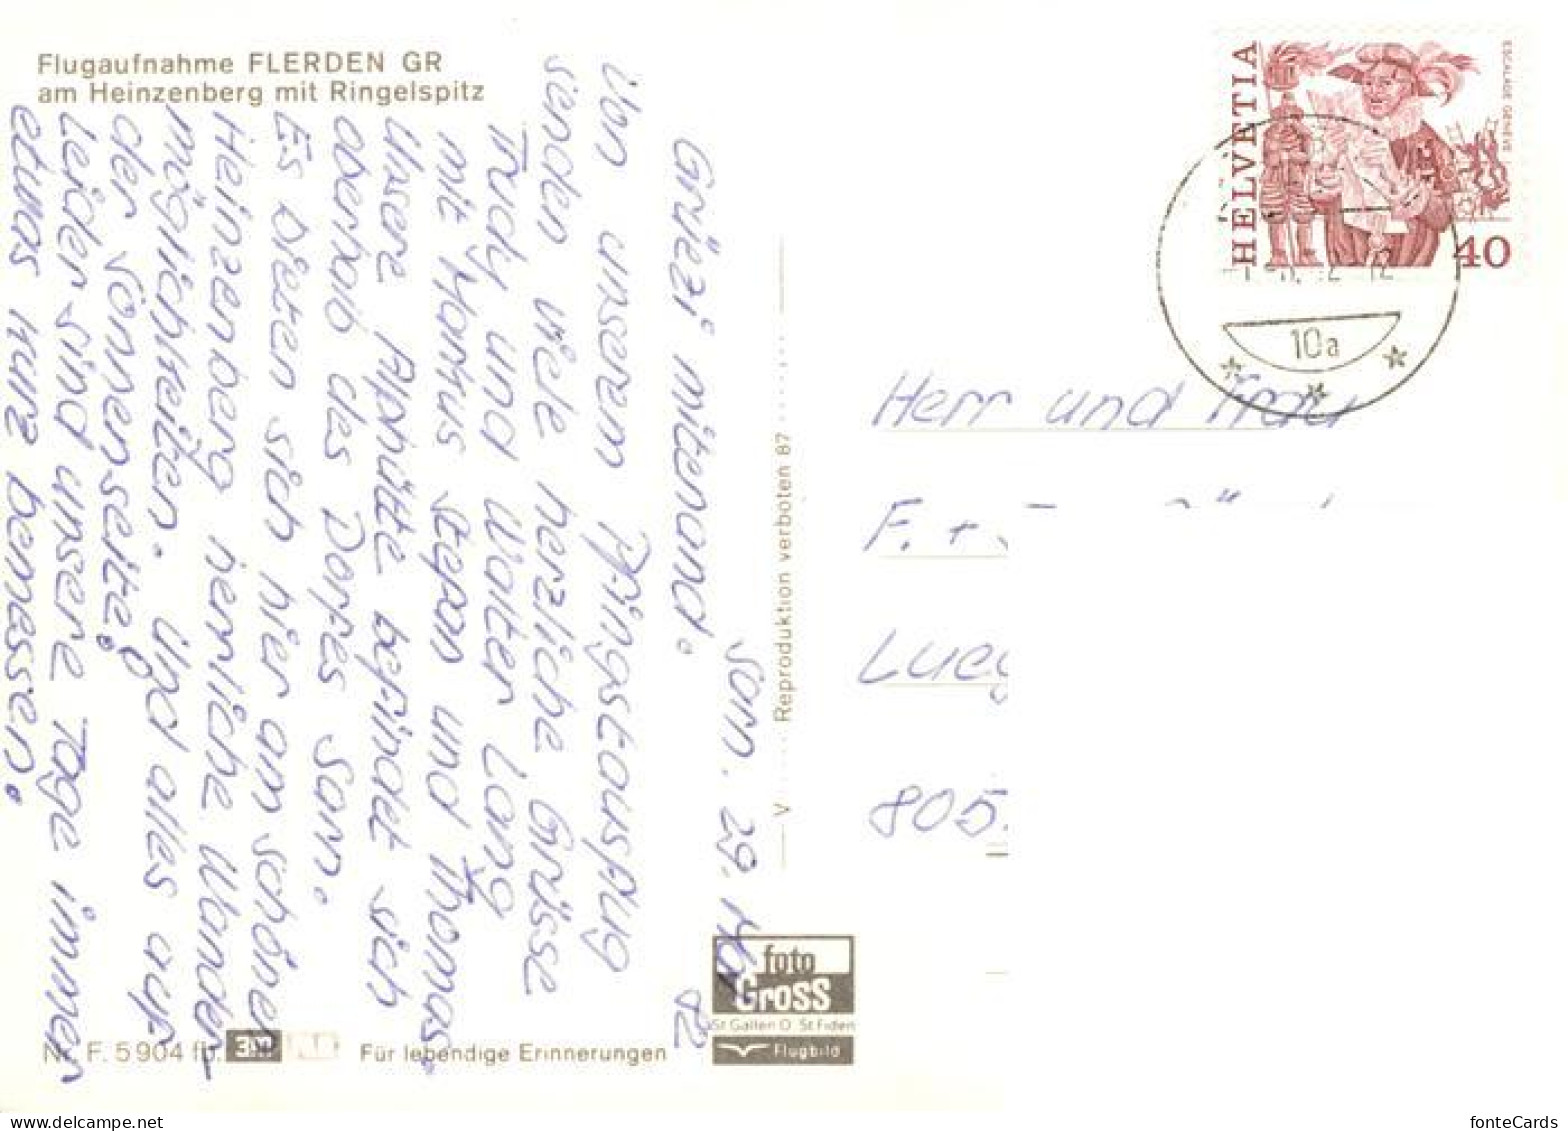 Flugaufnahme FLERDEN GR
am Heinzenberg mit Ringelspitz
Sarn. 29. Mai 82
Grüezi mitenand.
Von unserem Pfingstausflug
senden viele herzliche Grüsse
Trudy und Walter Lang
mit Markus Stefan und Thomas.
Unsere Alphütte befindet sich
oberhalb des Dorfes Sarn.
Es bieten sich hier am schönen
Heinzenberg herrliche Wander-
möglichkeiten. Und alles auf
der Sonnenseite!
Leider sind unsere Tage immer
etwas kurz bemessen.
Nr. F. 5904 fb.
3M
Für lebendige Erinnerungen
V Reproduktion verboten 87
foto
Gross
St Gallen O. St Fiden
Flugbild
HELVETIA
ESCALADE GENEVE
40
10a
Herr und Frau
F. +
805.
fonteCards